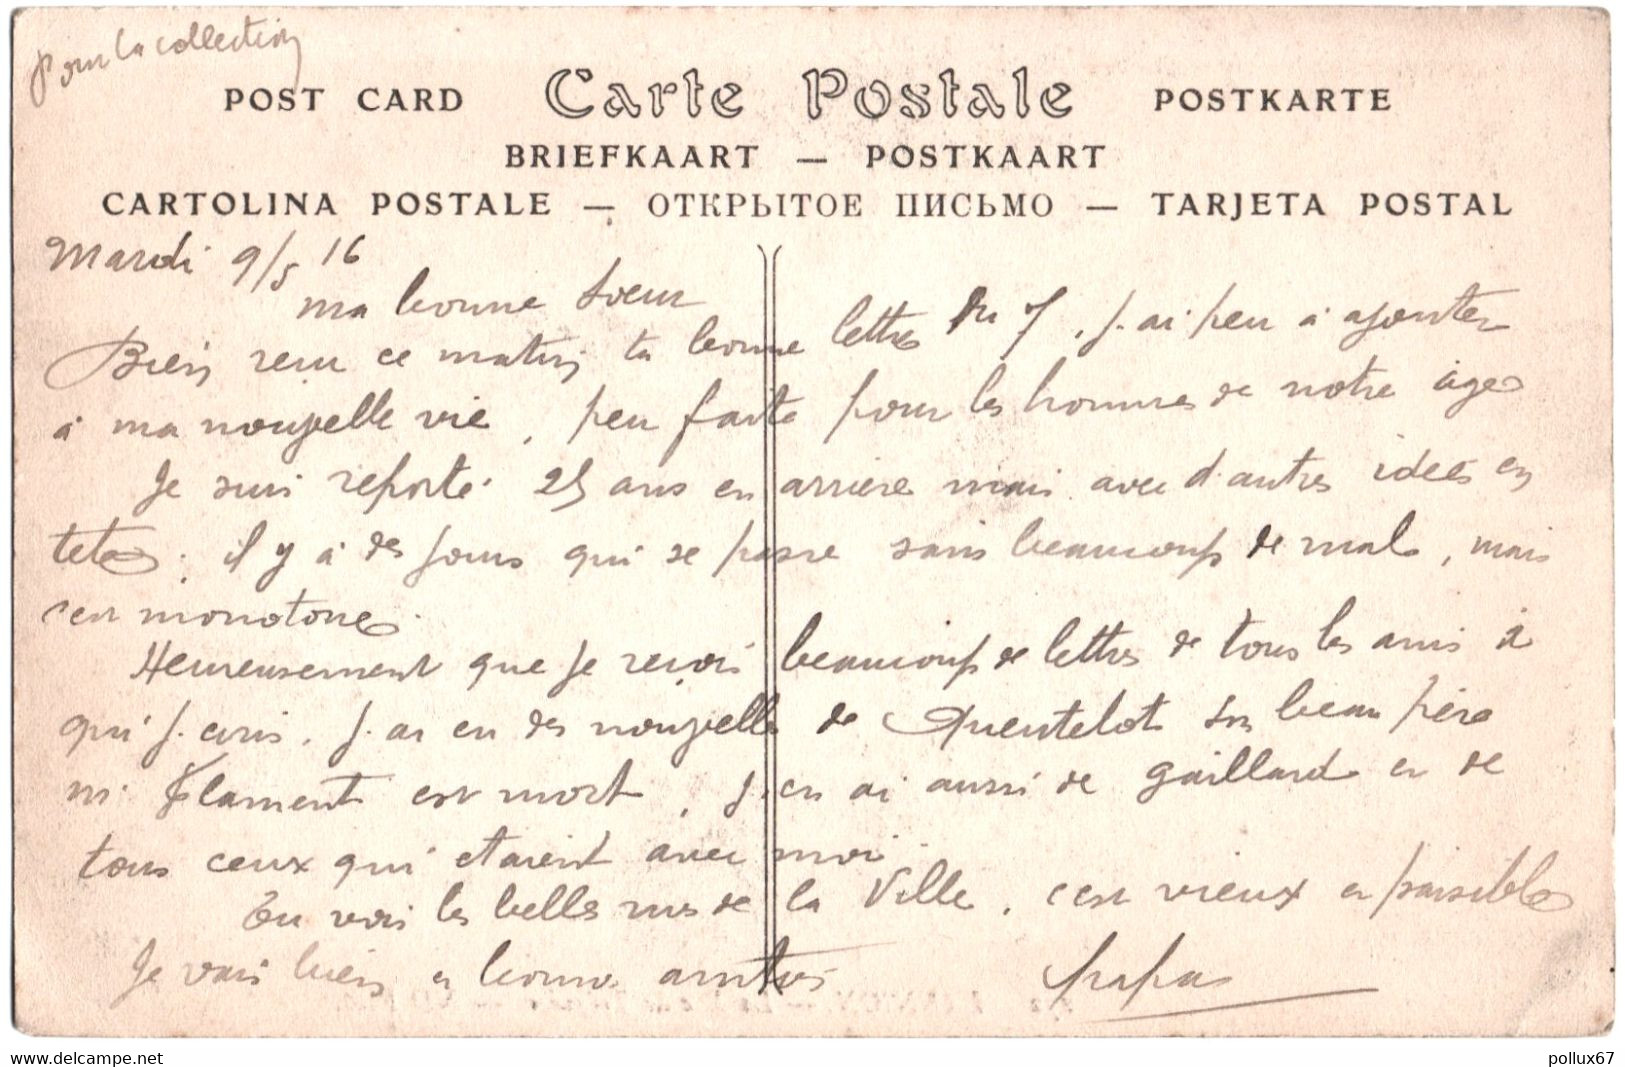 pour la collection
POST CARD Carte Postale POSTKARTE
BRIEFKAART — POSTKAART
CARTOLINA POSTALE — ОТКРЫТОЕ ПИСЬМО — TARJETA POSTAL
Mardi 9/5 16
ma bonne Soeur
Bien reçu ce matin ta bonne lettre du 7, j'ai peu à ajouter
à ma nouvelle vie, peu faite pour les hommes de notre âge
Je suis reporté 25 ans en arrière mais avec d'autres idées en
tete; il y à des jours qui se passe sans beaucoup de mal, mais
c'est monotone.
Heureusement que je reçois beaucoup de lettres de tous les amis à
qui j'ecris. j'ai eu des nouvelles de Quentelot son beau père
mr Flament est mort, j'en ai aussi de Gaillard et de
tous ceux qui etaient avec moi.
Tu vois les belles rues de la Ville, c'est vieux et paisible
Je vais bien et bonne
delcampe.net
pollux67